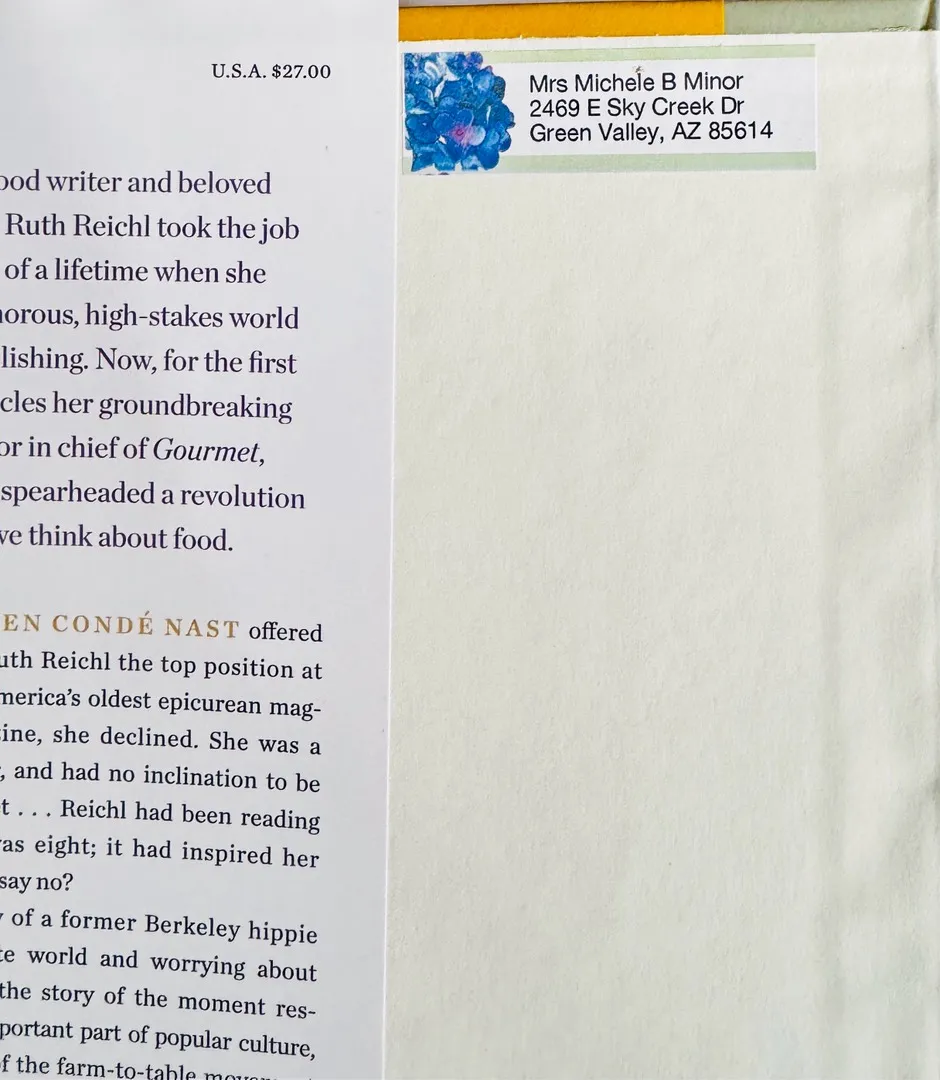 U.S.A. $27.00
writer and beloved
Ruth Reichl took the job
of a lifetime when she
high-stakes world
Now, for the first
her groundbreaking
in chief of Gourmet,
spearheaded a revolution
think about food.
CONDÉ NAST offered
Reichl the top position at
oldest epicurean mag-
she declined. She was a
, and had no inclination to be
. . . Reichl had been reading
eight; it had inspired her
say no?
of a former Berkeley hippie
world and worrying about
the story of the moment res-
part of popular culture,
the farm-to-table
Mrs Michele B Minor
2469 E Sky Creek Dr
Green Valley, AZ 85614